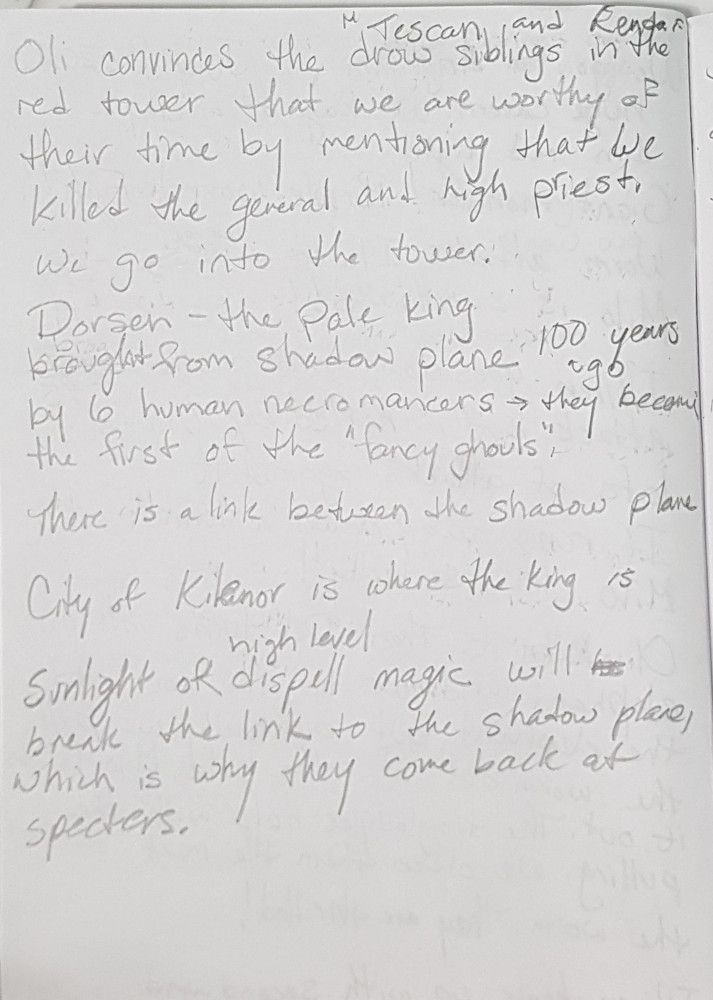 Tescan, and Rendar
Oli convinces the drow siblings in the
red tower that we are worthy of
their time by mentioning that we
killed the general and high priest.
We go into the tower.
Dorsen - the Pale King
brought from shadow plane 100 years
ago
by 6 human necromancers → they become
the first of the "fancy ghouls".
There is a link between the shadow plane
City of Kilanor is where the king is
high level
Sunlight or dispell magic will
break the link to the shadow plane,
which is why they come back at
specters.